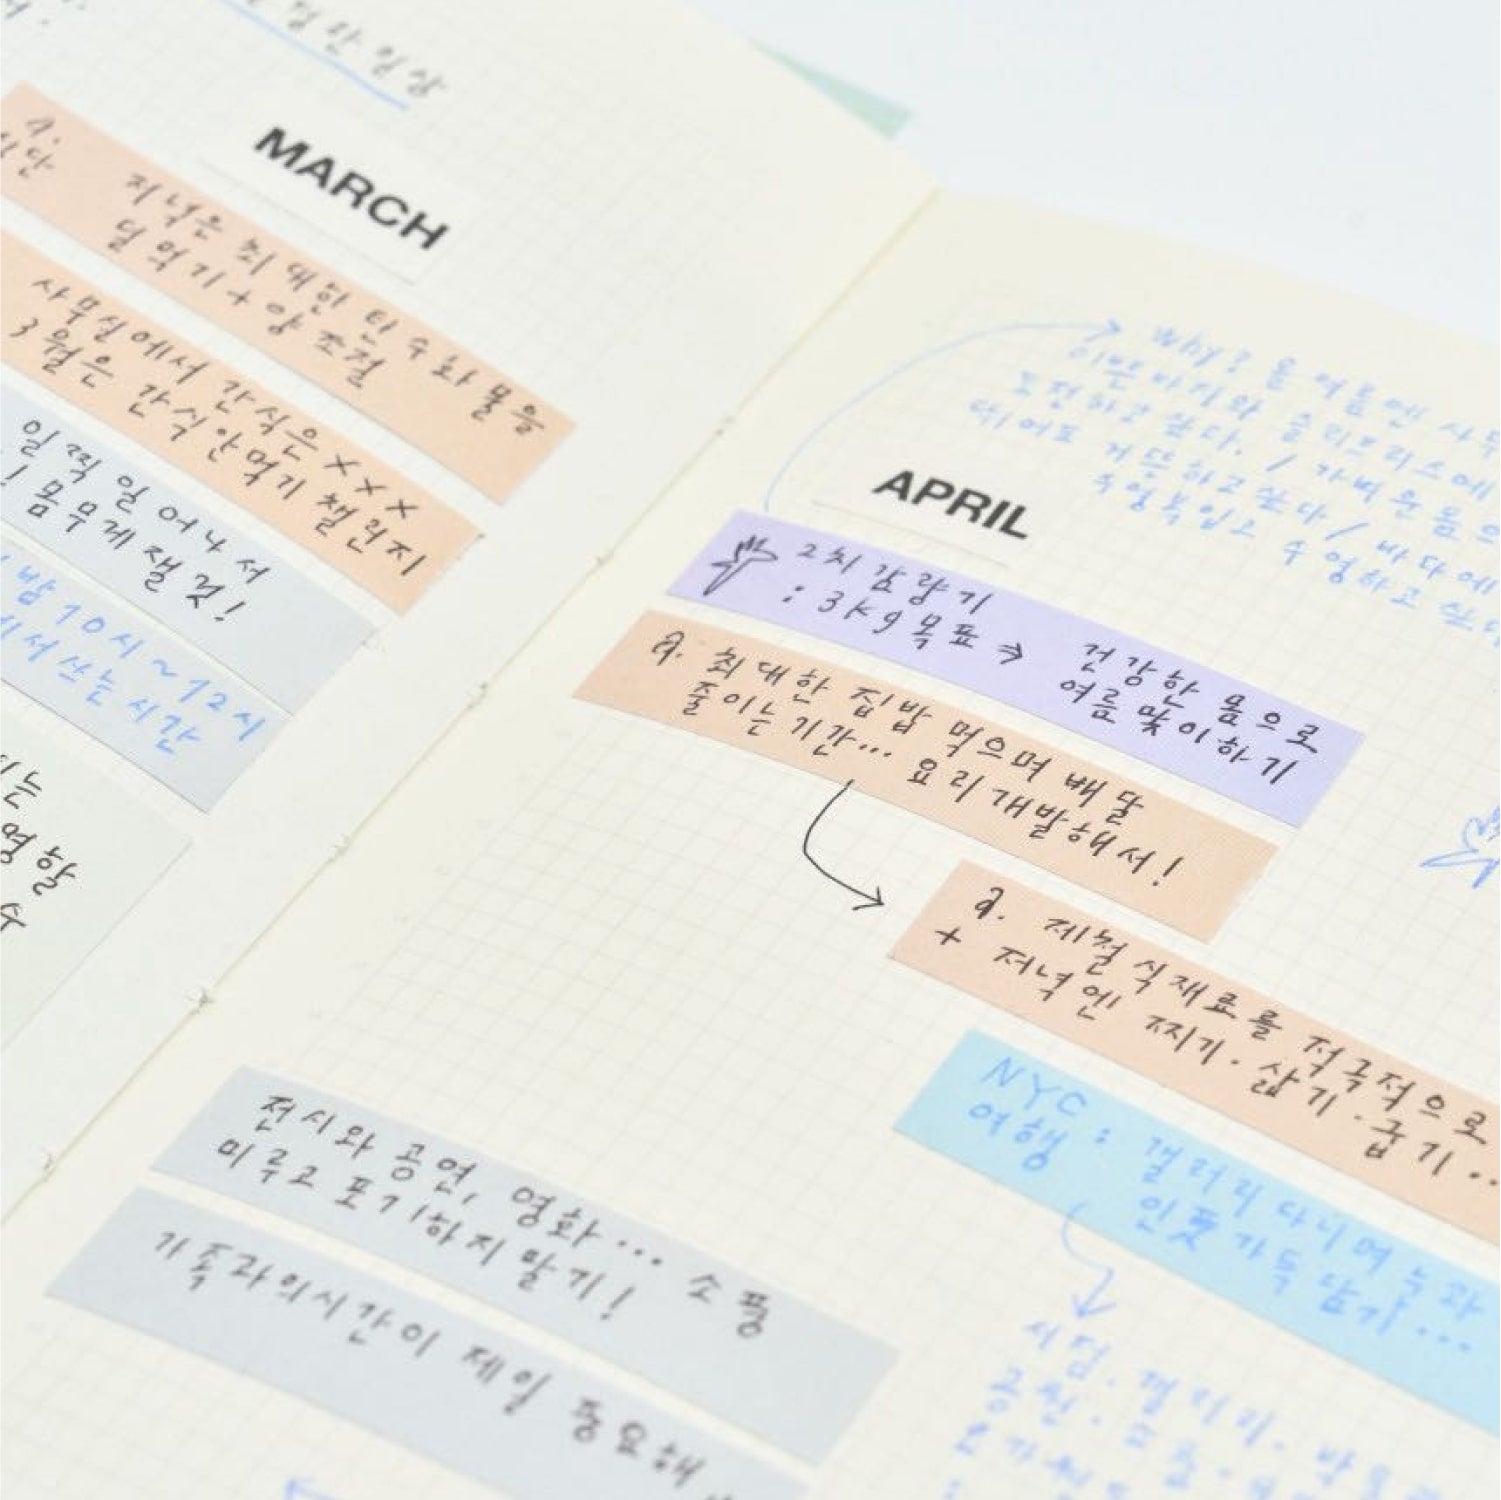 일상
MARCH
식단
저녁은 최대한 탄수화물을
덜 먹기 + 양 조절
사무실에서 간식은 XXX
3월은 간식 안 먹기 챌린지
일찍 일어나서
! 몸무게 잴 것!
밤 10시~12시
에서 쓰는 시간
는
영할
수
Why? 올 여름엔
도전하고 싶다. / 가벼운 몸으
다이어트 / 바다에
수영복 입고 수영하고 싶다
APRIL
2차 감량기
: 3Kg 목표 → 건강한 몸으로
여름 맞이하기
최대한 집밥 먹으며 배달
줄이는 기간... 요리 개발해서!
제철 식재료를 적극적으로
+ 저녁엔 찌기·삶기·굽기...
NYC : 갤러리 다니며
여행 인풋 가득 담기...
서점. 갤러리.
전시와 공연, 영화... 소풍
미루고 포기하지 말기!
가족과의 시간이 제일 중요해